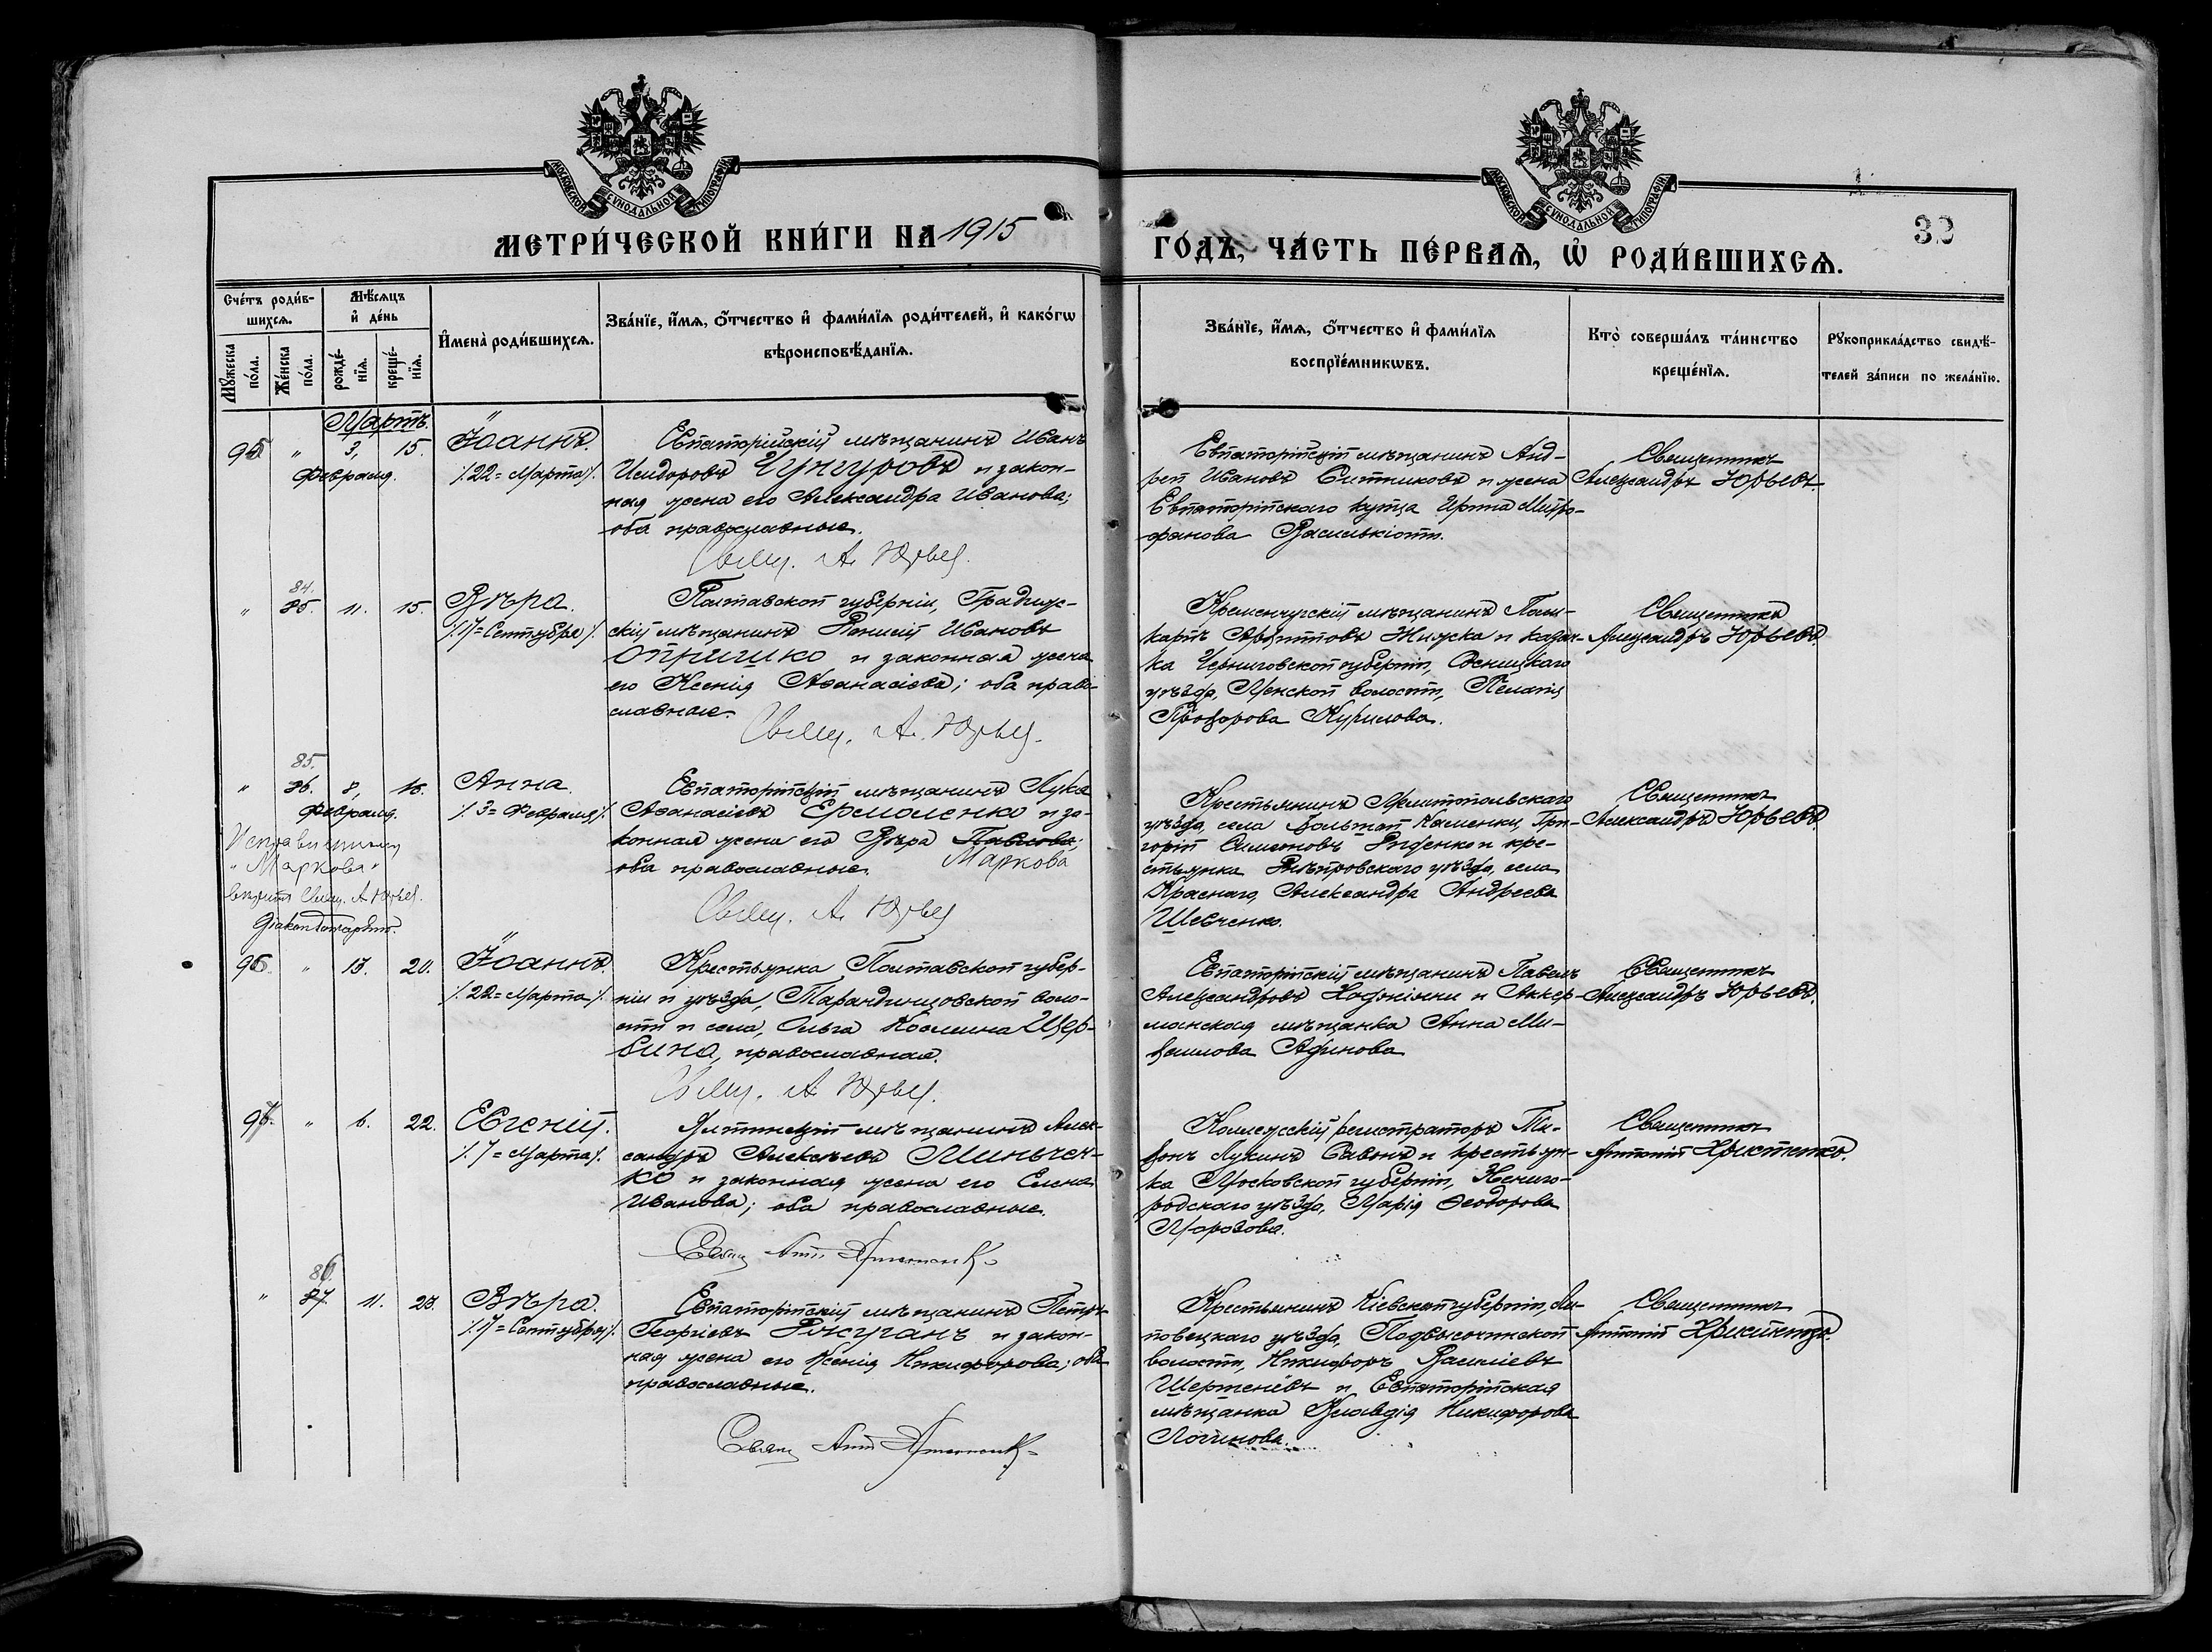 МОСКОВСКОЙ СѴНОДАЛЬНОЙ ТИПОГРАФІИ
МОСКОВСКОЙ СѴНОДАЛЬНОЙ ТИПОГРАФІИ
32
МЕТРИ́ЧЕСКОЙ КНИ́ГИ НА 1915 ГО́ДЪ, ЧА́СТЬ ПЕ́РВАѦ, Ѡ҆ РОДИ́ВШИХСѦ.
Сче́тъ роди́в-
шихсѧ.
Мꙋ́жеска
по́ла.
Же́нска
по́ла.
Мѣ́сѧцъ
и҆ де́нь
рожде́-
нїѧ.
креще́-
нїѧ.
И҆мена̀ роди́вшихсѧ.
Зва́нїе, и҆́мѧ, ѻ҆́тчество и҆ фами́лїѧ роди́телей, и҆ како́гѡ
вѣроисповѣ́данїѧ.
Зва́нїе, и҆́мѧ, ѻ҆́тчество и҆ фами́лїѧ
воспрїе́мникѡвъ.
Кто̀ соверша́лъ та́инство
креще́нїѧ.
Рꙋкоприкла́дство свидѣ́-
телей за́писи по жела́нїю.
Мартъ.
95 " 3, 15.
Февраля.
Іоаннъ.
/22 = Марта/.
Евпаторійскій мѣщанинъ Иванъ
Исидоровъ Чунгуровъ и закон-
ная жена его Александра Иванова;
оба православные.
Свящ. А. Юрьев.
Евпаторійскій мѣщанинъ Анд-
рей Ивановъ Ситниковъ и жена
Евпаторійскаго купца Ирина Митро-
фанова Василькіоти.
Священникъ
Александръ Юрьевъ.
84.
" 85. 11. 15.
Вѣра.
/17 = Сентября/.
Полтавской губерніи, Градиж-
скій мѣщанинъ Діонисій Ивановъ
Опришко и законная жена
его Ксенія Аѳанасіева; оба право-
славные.
Свящ. А. Юрьев.
Кременчугскій мѣщанинъ Поли-
карпъ Архиповъ Жижка и казач-
ка Черниговской губерніи, Сосницкаго
уѣзда, Менской волости, Пелагія
Прохорова Курилова.
Священникъ
Александръ Юрьевъ.
85.
" 86. 8, 16.
Февраля.
Анна.
/3 = Февраля/.
Евпаторійскій мѣщанинъ Лука
Аѳанасіевъ Ермоленко и за-
конная жена его Вѣра Павлова;
Маркова
оба православные.
Свящ. А. Юрьев
"Маркова"
Свящ. А. Юрьев.
Діакон
Крестьянинъ Мелитопольскаго
уѣзда, села Большой Каменки, Гри-
горій Симеоновъ Руденко и кре-
стьянка Днѣпровскаго уѣзда, села
Краснаго, Александра Андреева
Шевченко.
Священникъ
Александръ Юрьевъ.
96. " 13. 20.
Іоаннъ.
/22 = Марта/.
Крестьянка Полтавской губер-
ніи и уѣзда, Тарандинцовской воло-
сти и села, Ольга Козьмина Щер-
бина, православная.
Свящ. А. Юрьев.
Евпаторійскій мѣщанинъ Павелъ
Александровъ и Аккер-
манская мѣщанка Анна Ми-
хаилова Афинова
Священникъ
Александръ Юрьевъ.
97. " 6. 22.
Евгеній.
/7 = Марта/.
Ялтинскій мѣщанинъ Алек-
сандръ Алексѣевъ Минычен-
ко и законная жена его Елена
Иванова; оба православные.
Свящ Ант. Христенко
Коллежскій регистраторъ Ти-
хонъ Лукинъ Савонъ и крестьян-
ка Московской губерніи, Звениго-
родскаго уѣзда, Марія Ѳеодорова
Морозова.
Священникъ
Антоній Христенко.
86.
" 87 11. 23.
Вѣра.
/17 = Сентября/.
Евпаторійскій мѣщанинъ Петръ
Георгіевъ и закон-
ная жена его Ксенія Никифорова; оба
православные.
Свящ Ант Христенко
Крестьянинъ Кіевской губерніи, Ли-
повецкаго уѣзда, Подвысочинской
волости, Никифоръ Василіевъ
и Евпаторійская
мѣщанка Клавдія Никифорова
Логинова.
Священникъ
Антоній Христенко.